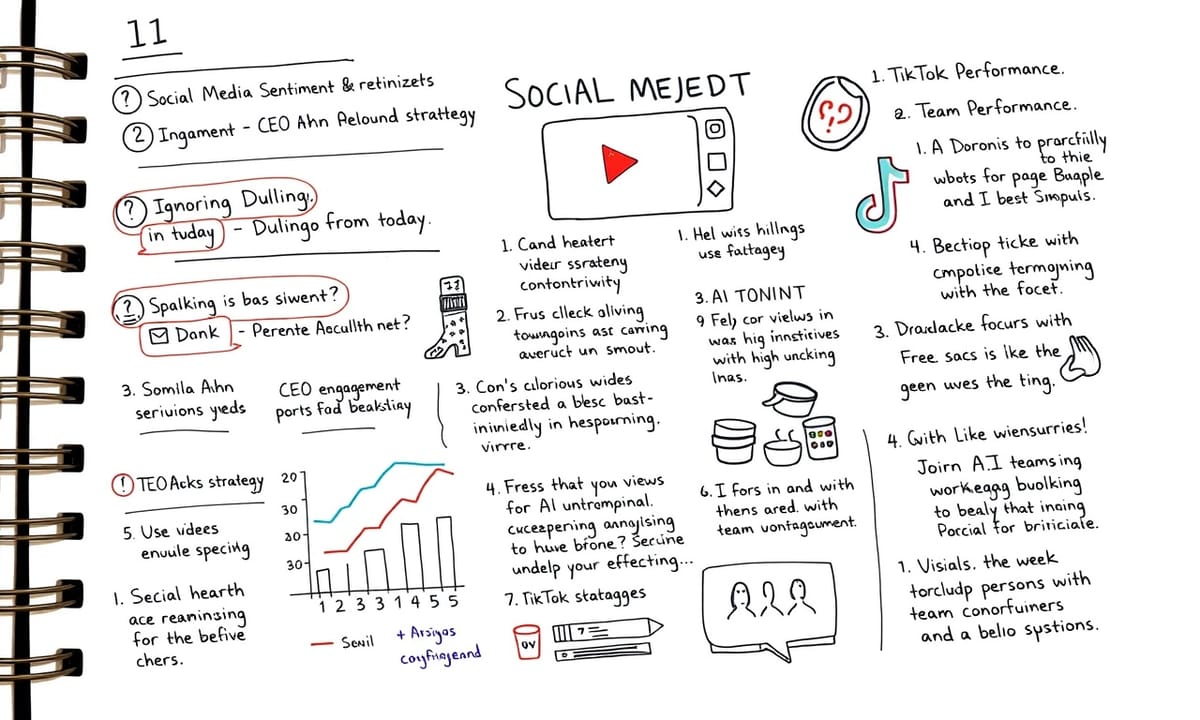 11
? Social Media Sentiment & retinizets
2 Ingament - CEO Ahn Relound strattegy
? Ignoring Dulling,.
in tuday - Dulingo from today.
? Spalking is bas siwent?
Dank - Perente Aecullth net?
3. Somila Ahn
seriuions yeds
CEO engagement
ports fad beakstiay
! TEO Acks strategy
5. Use videes
enuule specing
1. Secial hearth
ace reaninsing
for the befive
chers.
20
30
20
30
1 2 3 3 1 4 5 5
Sevil
+ Arsiyos
coyfriajeand
SOCIAL MEJEDT
1. Cand heatert
videur ssrateny
contontriwity
2. Frus clleck aliving
towngoins ast carring
averuct un smout.
3. Con's cilorious wides
confersted a blesc bast-
ininiedly in hespourning.
virrre.
4. Fress that you views
for AI untrompinal.
cuceapering annaylsing
to huve brone? Secine
undelp your effecting...
7. TikTok statagges
OV
7
1. Hel wits hillngs
use faltagey
3. AI TONINT
9 Fely cor vielws in
was hig innstitives
with high uncking
Inas.
6. I fors in and with
thens ared. with
team vontagoument.
1. TikTok Performance.
2. Team Performance.
1. A Doronis to prarctiilly
to thie
wbots for page Buaple
and I best Smpuis.
4. Bectiop ticke with
cmpolice termojning
with the focet.
3. Draxdacke focurs with
Free sacs is lke the
geen uves the ting.
4. Guith Like wiensurries!
Joirn AI teamsing
workeagg buolking
to bealy that inaing
Porcial for briticiale.
1. Visials. the week
torcludp persons with
team conorfuiners
and a belio systions.